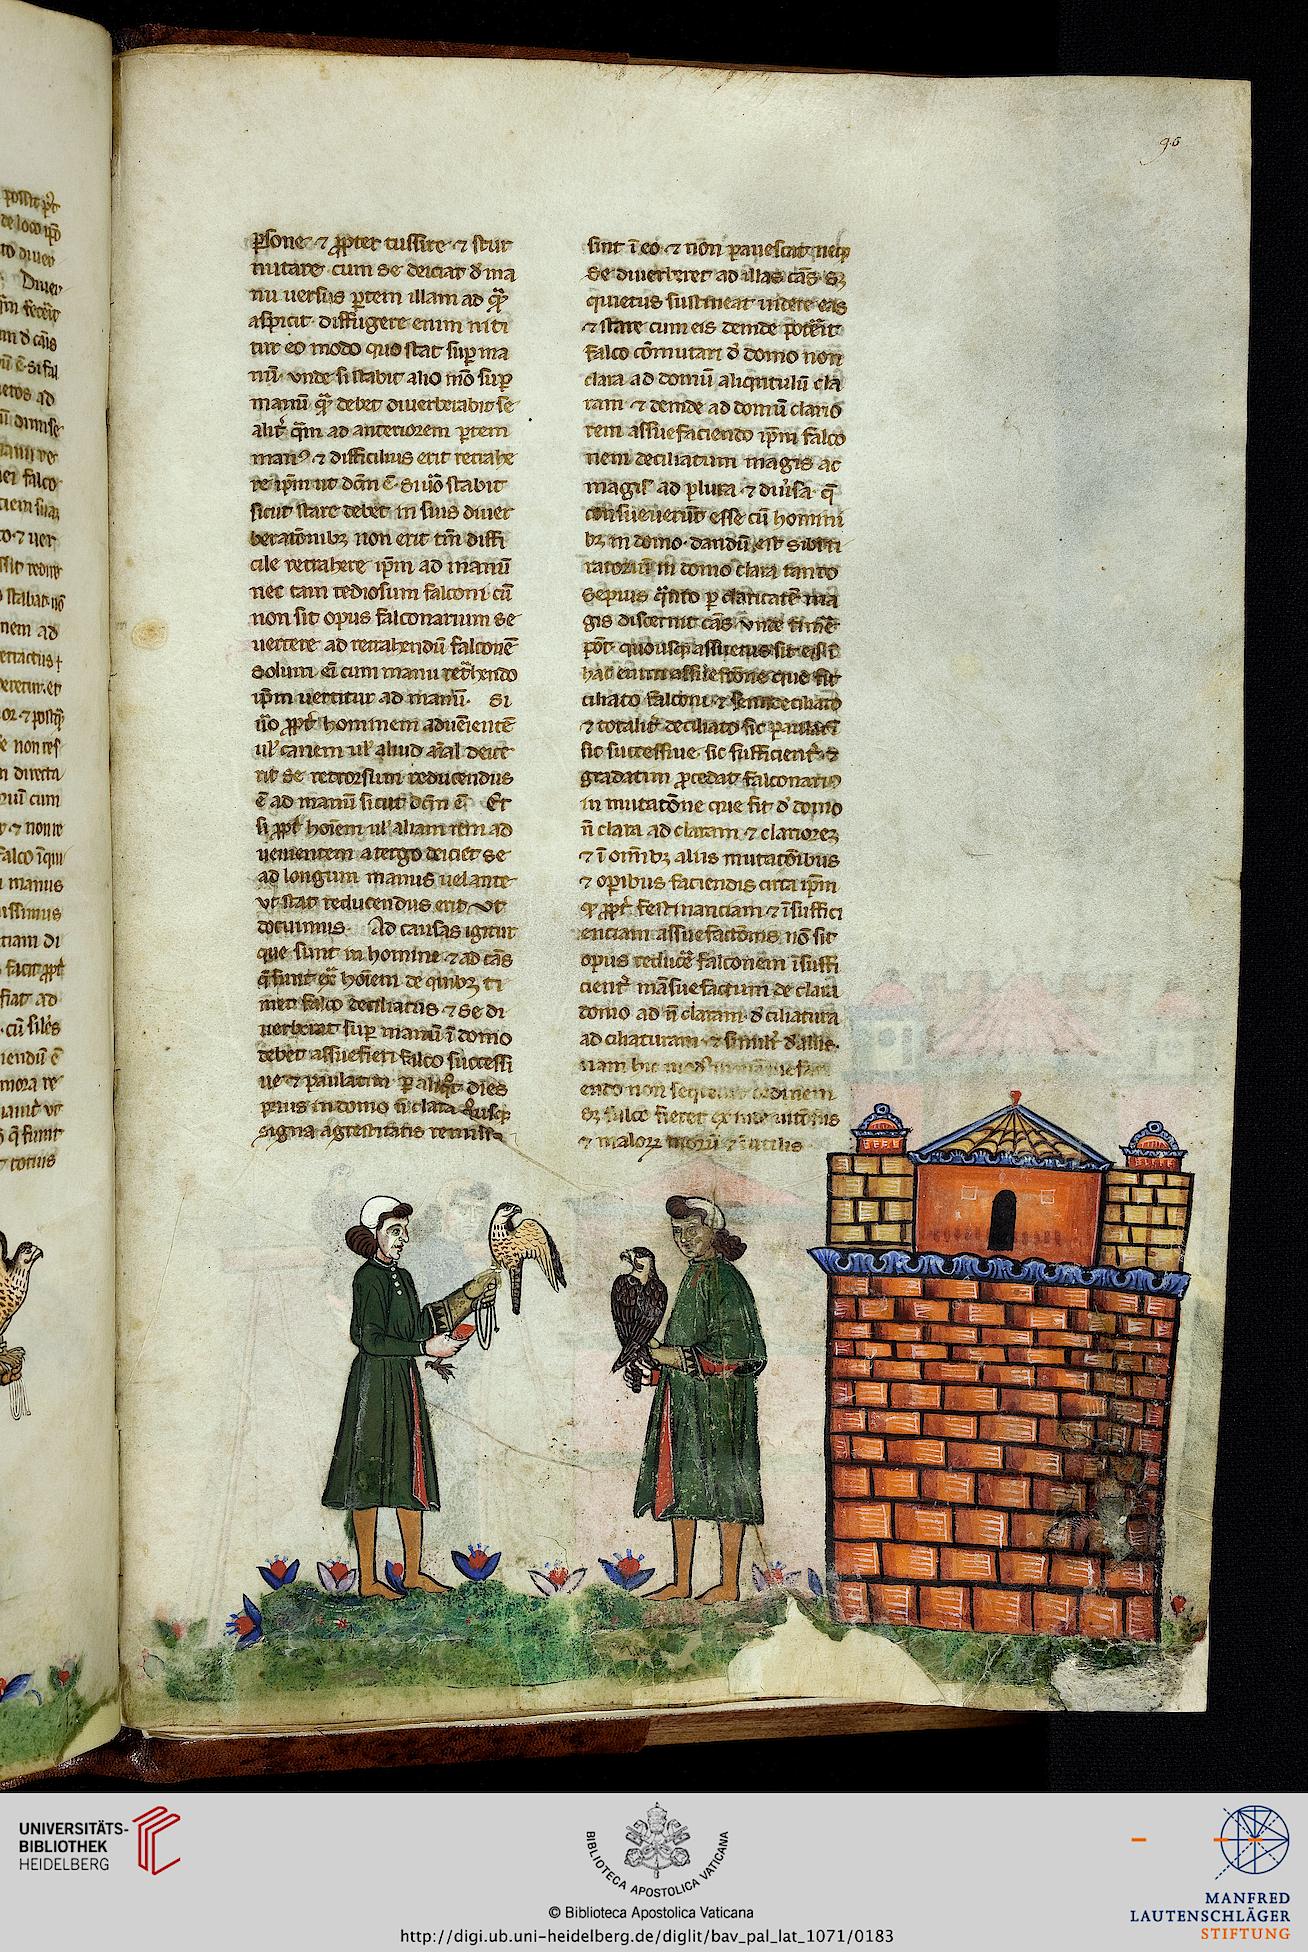 90
ꝑsone· ⁊ ꝓpter tussire ⁊ stur
nutare· cum se deiciat d̓ ma
nu uersus ꝑtem illam ad q̄ꝫ
aspicit· diffugere enim niti
tur eo modo quo stat suꝑ ma
nū· vnde si stabit alio mō suꝑ
manū q̄ꝫ debet diuerberabit se
alit̓ q̄m ad anteriorem ꝑtem
manꝰ ⁊ difficilius erit retrahe
re ip̄m ut dc̄m ē· Si ūo stabit
sicut stare debet in suis diuer
berationibꝫ non erit tm̄ diffi
cile retrahere ip̄m ad manū
nec tam tediosum falconi cū
non sit opus falconarium se
uertere ad retrahendū falconē
solum eī cum manu ret̓hendo
ip̄m uertitur ad manū· Si
ūo ꝓpt̓ hominem aduēientē
ul̓ canem ul̓ aliud aīal deiec̓
rit se retrorsum reducendus
ē ad manū sicut dc̄m ē· Et
si ꝓpt̓ hoīem ul̓ aliam rem ad
uenientem a tergo deiciet se
ad longum manus uel ante
vt stat reducendus erit vt
docuimus· Ad causas igitur
que sunt in homine ⁊ ad cās
q̄ sunt ext̄ hoīem de quibꝫ ti
met falco deciliatus ⁊ se di
uerberat suꝑ manū ī domo
debet assuefieri falco successi
ue ⁊ paulatim ꝑ aliq̊t dies
prius in domo ñ clara q̊usqꝫ
signa agrestitatis remiss
sint ī eo· ⁊ non pauescat neqꝫ
se diuerberet ad illas cās sꝫ
quietus sustineat uidere eas
⁊ stare cum eis deinde pot̄it
falco cōmutari d̓ domo non
clara ad domū aliqñtulū cla
ram ⁊ deinde ad domū clario
rem assuefaciendo ip̄m falco
nem deciliatum magis ac
magis ad plura ⁊ diūsa q̄
consueuerūt esse cū homini
bꝫ in domo· dandū est sibi ti
ratorium in domo clara tanto
sepius q̄nto ꝑ claritatē ma
gis discernit cās vnde
pōt· quousqꝫ assuetus sit
hac que fit
ciliato falconi ⁊ semideciliato
⁊ totalit̓ deciliato sic paulatī
sic successiue· sic sufficient̓ ⁊
gradatim ꝓcedat falconariꝰ
in mutatōne que fit d̓ domo
ñ clara ad claram ⁊ clariorez
⁊ ī omībꝫ aliis mutatōibus
⁊ oꝑibus faciendis circa ip̄m
qꝫ ꝓpt̓ festinanciam ⁊ īsuffici
enciam assuefactōnis nō sit
opus reducē falconem īsuffi
cient̓ māsuefactum de clara
domo ad ñ claram· d̓ ciliatura
ad ciliaturam· ⁊ simili d̓ aliis·
nam hic mansuefaci
endo non ordinem
sꝫ falco fieret
⁊ malorꝫ morū ⁊ īutilis
UNIVERSITÄTS-
BIBLIOTHEK
HEIDELBERG
BIBLIOTECA APOSTOLICA VATICANA
© Biblioteca Apostolica Vaticana
http://digi.ub.uni-heidelberg.de/diglit/bav_pal_lat_1071/0183
MANFRED
LAUTENSCHLÄGER
STIFTUNG